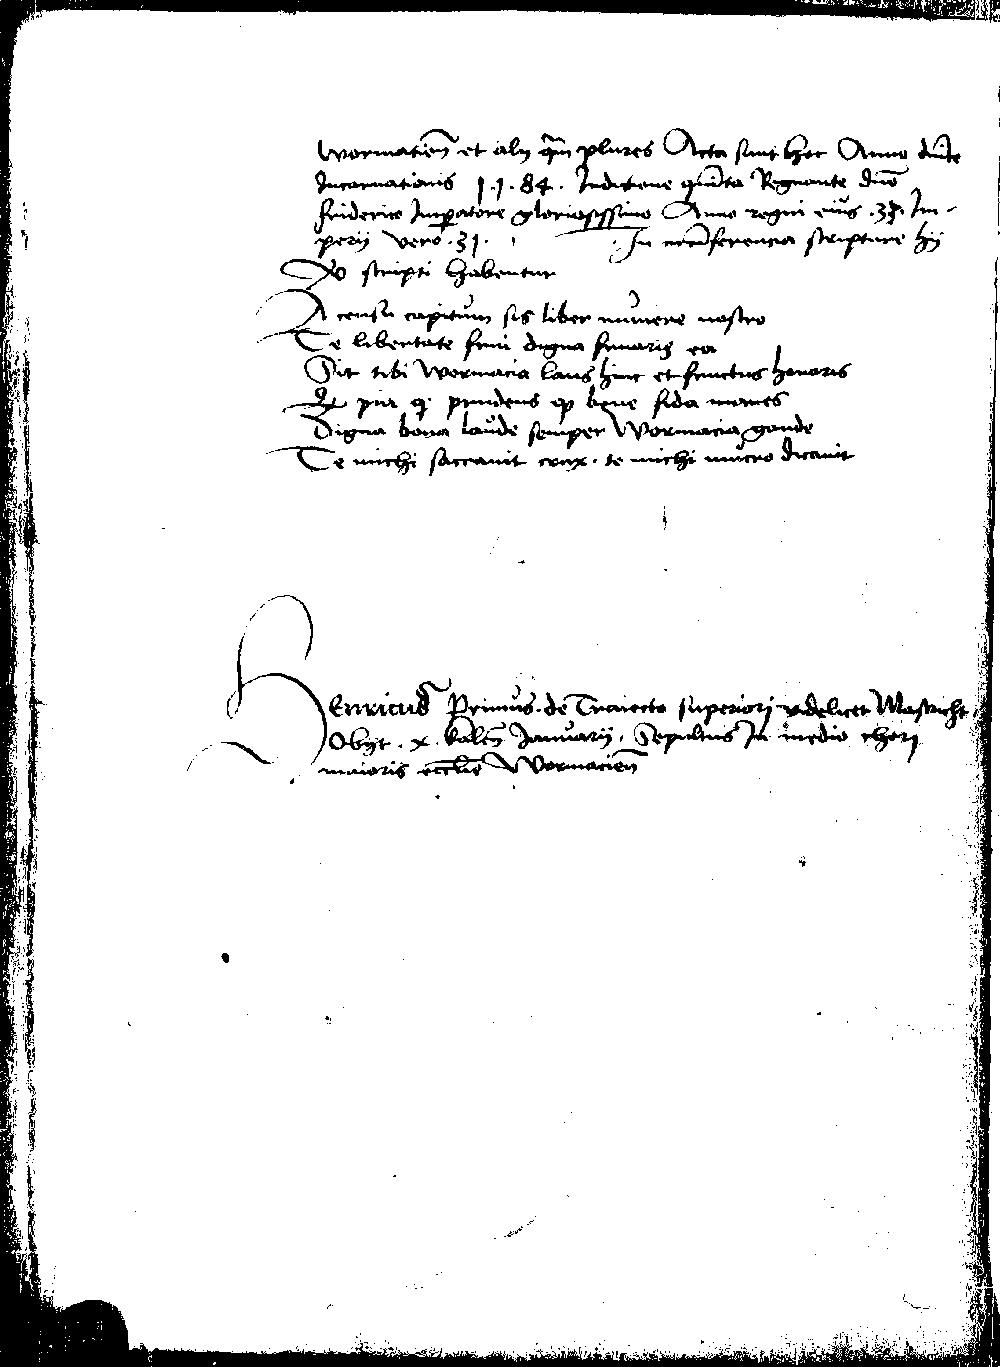 wormatien̄ et alij q̄m plures Acta sunt hec Anno dn̄ce
Incarnationis 1.1.84. Indictione quīta Regnante dn̄o
friderico Imꝑatore gloriosissimo Anno regni eius .33. Im-
perij vero .31. In circūferencia scripture hij
scripti habentur
A censu capitum sis liber munere nostro
Te libertate frui digna fruaris ea
Sit tibi Wormacia laus hinc et fructus honoris
pia prudens bene fida manes
Digna bona laude semper Wormacia gaude
Te michi sacravit crux. te michi mucro dicavit
HEnricus Primus. de Traiecto superiori videlicet Mastricht.
Obijt. x. kalen̄ Januarij. Sepultus In medio chori
maioris eccl̄ie Wormacien̄